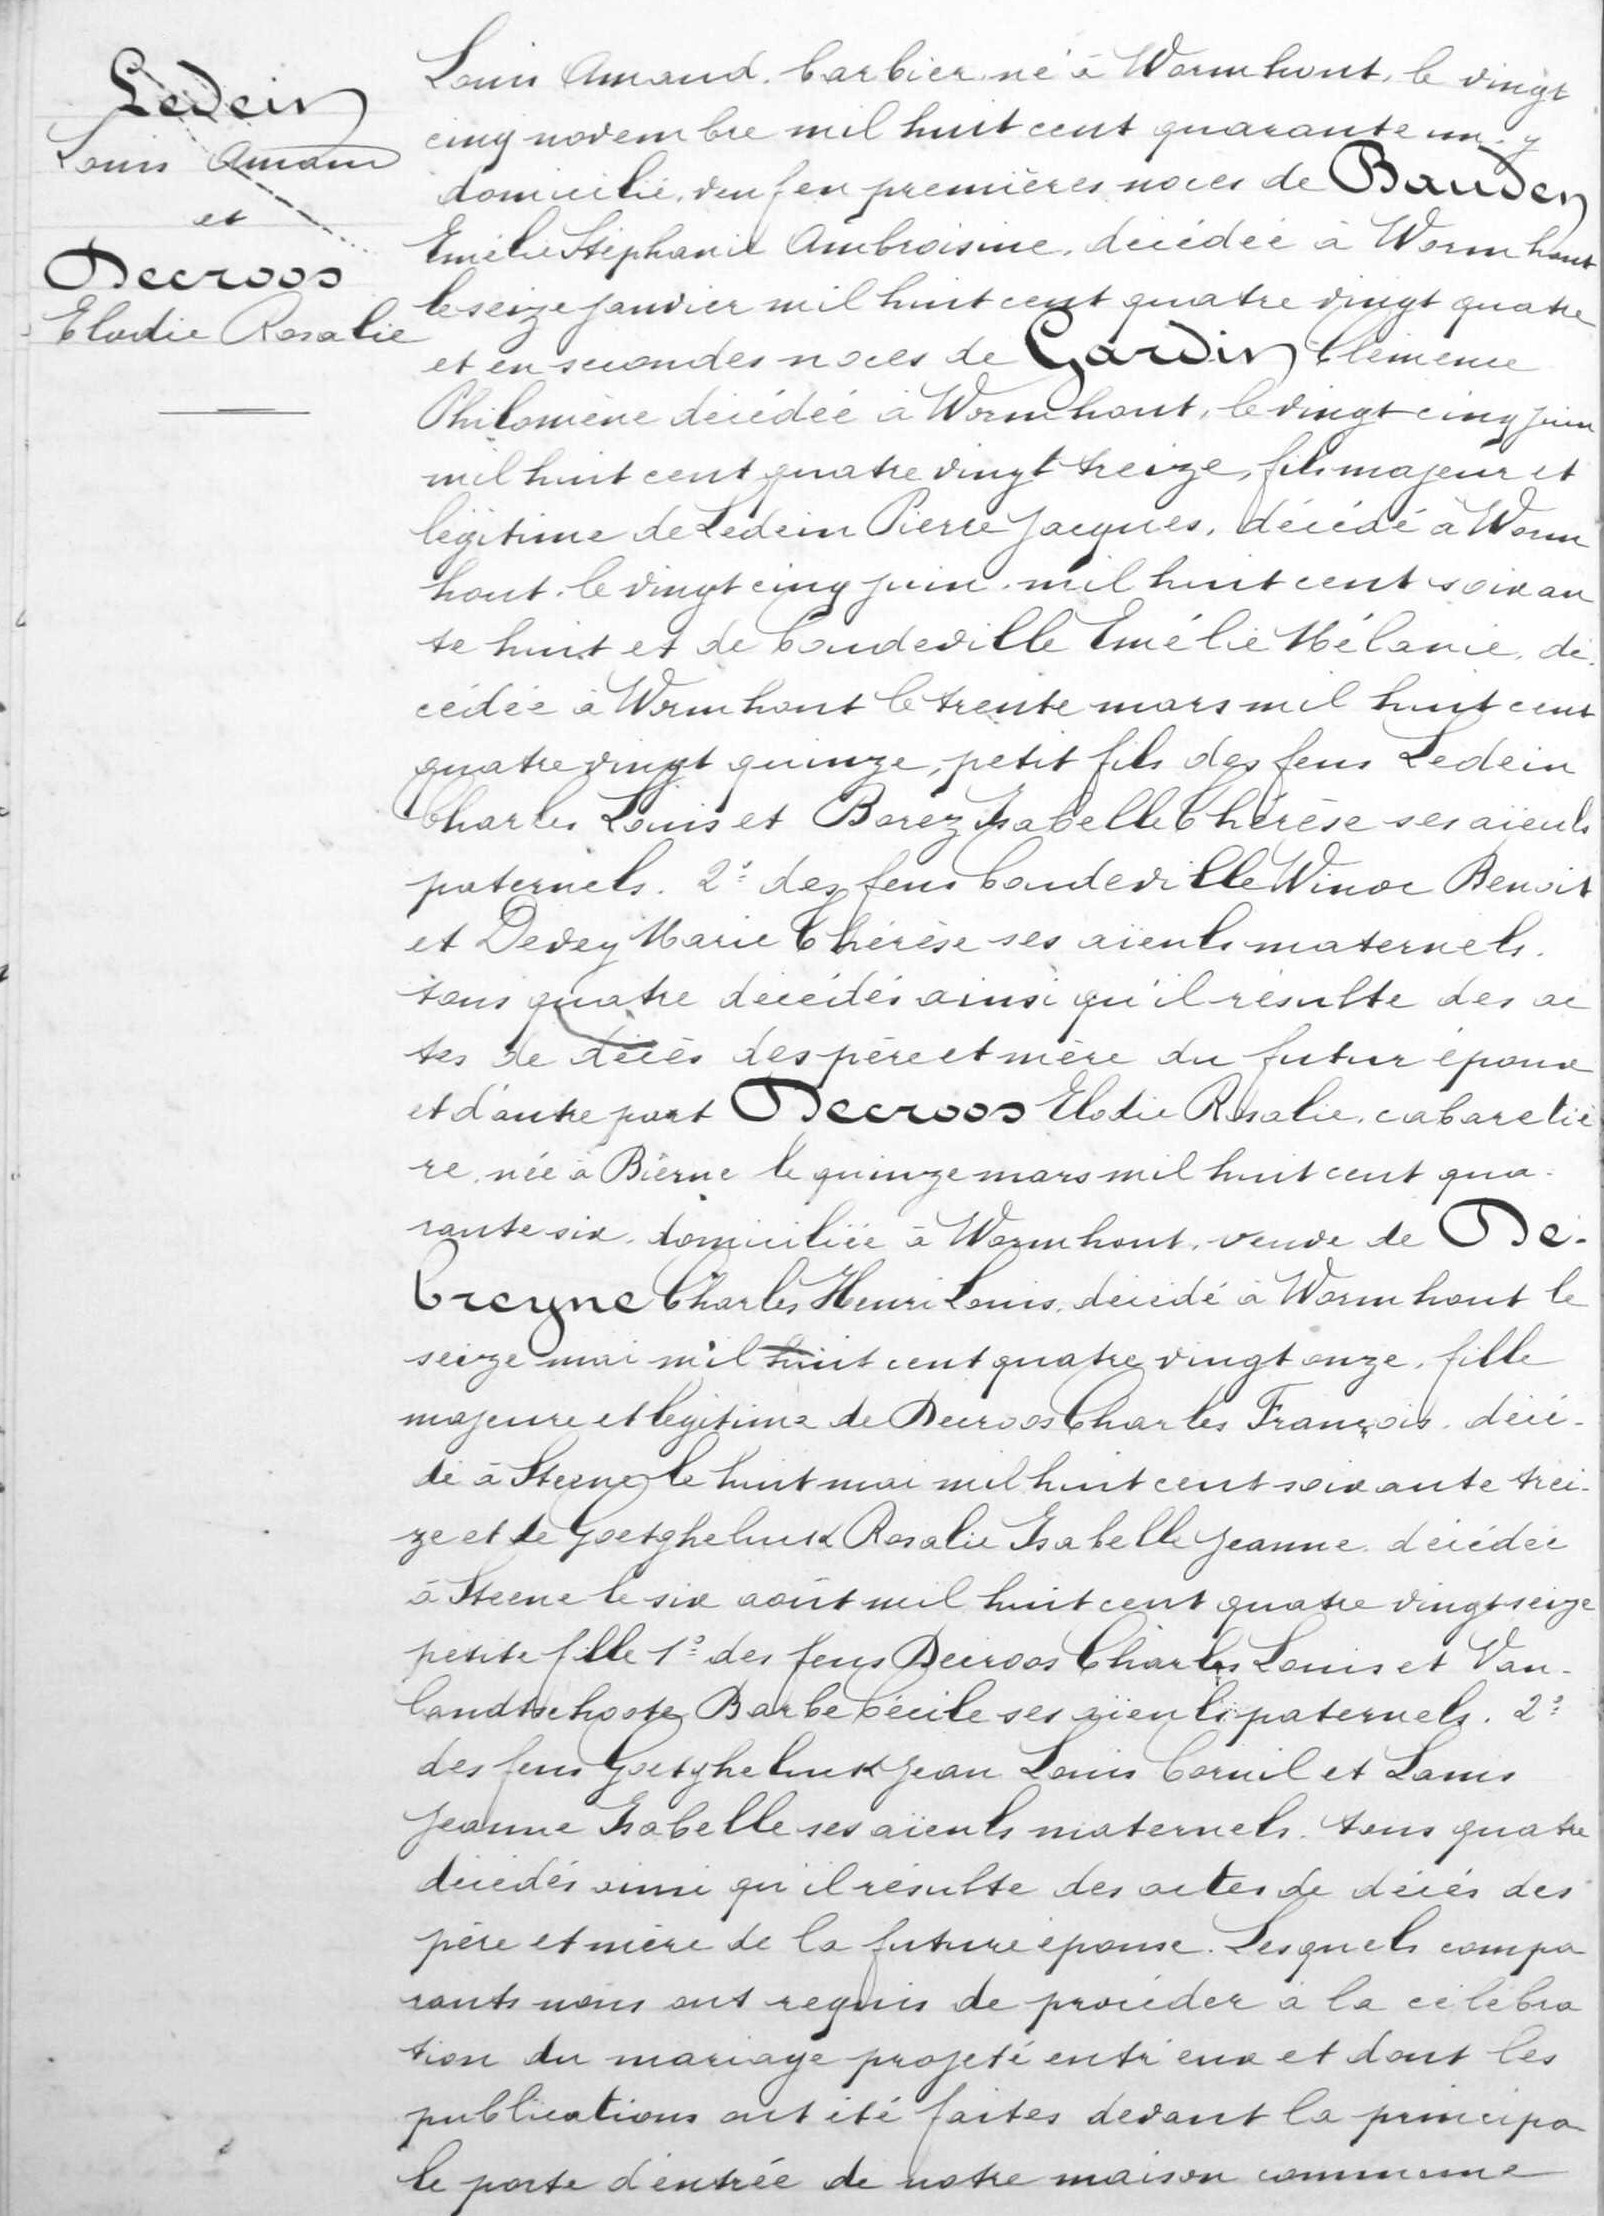 Ledein
Louis Amand
et
Decroos
Elodie Rosalie
Louis Amand, barbier, né à Wormhout, le vingt
cinq novembre mil huit cent quarante un, y
domicilié, veuf en premières noces de Bauden
Emélie Stéphanie Ambroisine, décédée à Wormhout
le seize janvier mil huit cent quatre vingt quatre
et en secondes noces de Gardin Clémence
Philomène décédée à Wormhout, le vingt cinq juin
mil huit cent quatre vingt treize, fils majeur et
légitime de Ledein Pierre Jacques, décédé à Worm
hout, le vingt cinq juin, mil huit cent soixan
te huit et de Coudeville Emélie Mélanie, dé.
cédée à Wormhout le trente mars mil huit cent
quatre vingt quinze, petit fils des feus Ledein
Charles Louis et Barez Isabelle Thérèse ses aïeuls
paternels. 2° des feus Coudeville Winoc Benoit
et Devey Marie Thérèse ses aïeuls maternels.
tous quatre décédés ainsi qu'il résulte des ac
tes de décès des père et mère du futur époux
et d'autre part Decroos Elodie Rosalie, cabaretiè
re, née à Bierne le quinze mars mil huit cent qua-
rante six, domiciliée à Wormhout, veuve de De-
breyne Charles Henri Louis, décédé à Wormhout le
seize mai mil huit cent quatre vingt onze, fille
majeure et légitime de Decroos Charles François, décé-
dé à Steene le huit mai mil huit cent soixante trei-
ze et de Goetgheluck Rosalie Isabelle Jeanne, décédée
à Steene le six août mil huit cent quatre vingt seize
petite fille 1° des feus Decroos Charles Louis et Van-
landtschoote Barbe Cécile ses aïeuls paternels. 2°
des feus Goetgheluck Jean Louis Cornil et Lams
Jeanne Isabelle ses aïeuls maternels. tous quatre
décédés ainsi qu'il résulte des actes de décès des
père et mère de la future épouse. Lesquels compa
rants nous ont requis de procéder à la célébra
tion du mariage projeté entr'eux et dont les
publications ont été faites devant la principa
le porte d'entrée de notre maison commune